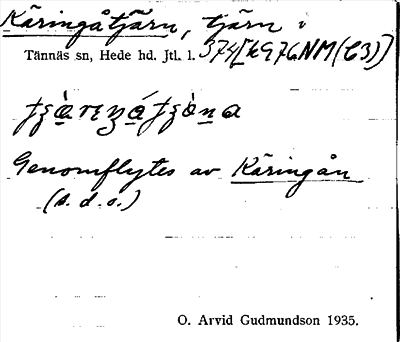 Käringåtjärn, tjärn i
Tännäs sn, Hede hd. Jtl. l. 374[k976NM(C3)]
Genomflytes av Käringån
(s. d. o.)
O. Arvid Gudmundson 1935.